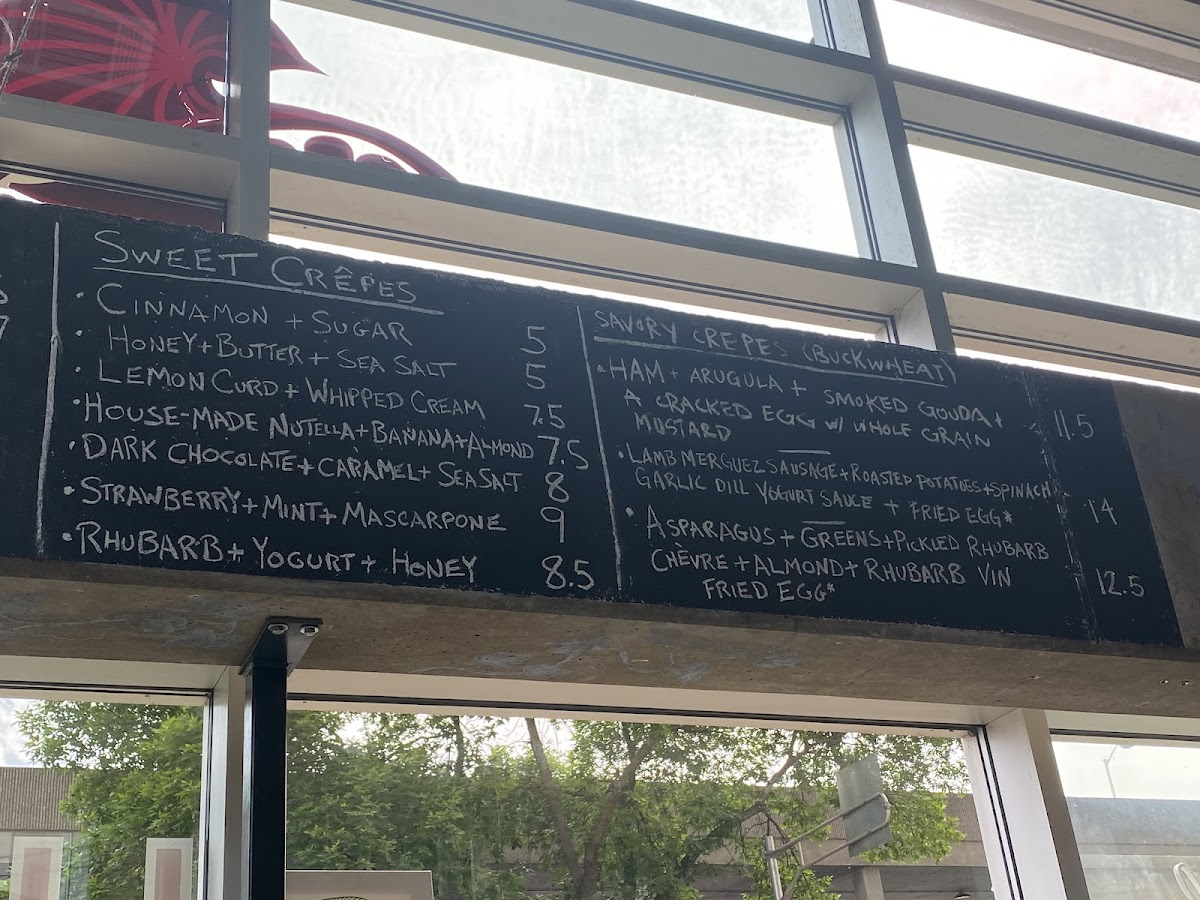 SWEET CRÊPES
• CINNAMON + SUGAR 5
• HONEY + BUTTER + SEA SALT 5
• LEMON CURD + WHIPPED CREAM 7.5
• HOUSE-MADE NUTELLA + BANANA + ALMOND 7.5
• DARK CHOCOLATE + CARAMEL + SEA SALT 8
• STRAWBERRY + MINT + MASCARPONE 9
• RHUBARB + YOGURT + HONEY 8.5
SAVORY CREPES (BUCKWHEAT)
• HAM + ARUGULA + SMOKED GOUDA +
A CRACKED EGG W/ WHOLE GRAIN 11.5
MUSTARD
• LAMB MERGUEZ SAUSAGE + ROASTED POTATOES + SPINACH +
GARLIC DILL YOGURT SAUCE + FRIED EGG* 14
• ASPARAGUS + GREENS + PICKLED RHUBARB
CHÈVRE + ALMOND + RHUBARB VIN 12.5
FRIED EGG*